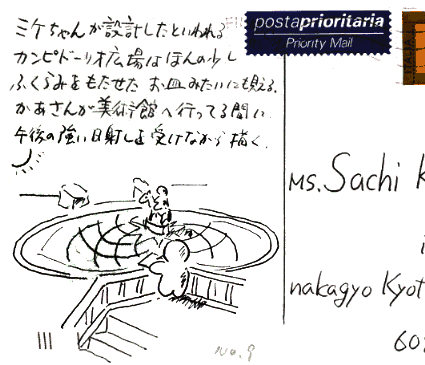 ミケちゃんが設計したといわれる
カンピドーリオ広場はほんの少し
ふくらみをもたせた お皿みたいにも見える。
かあさんが美術館へ行ってる間に
午後の強い日射しを受けながら描く。
postaprioritaria
Priority Mail
Ms. Sachi K
nakagyo Kyot
60
No. 9